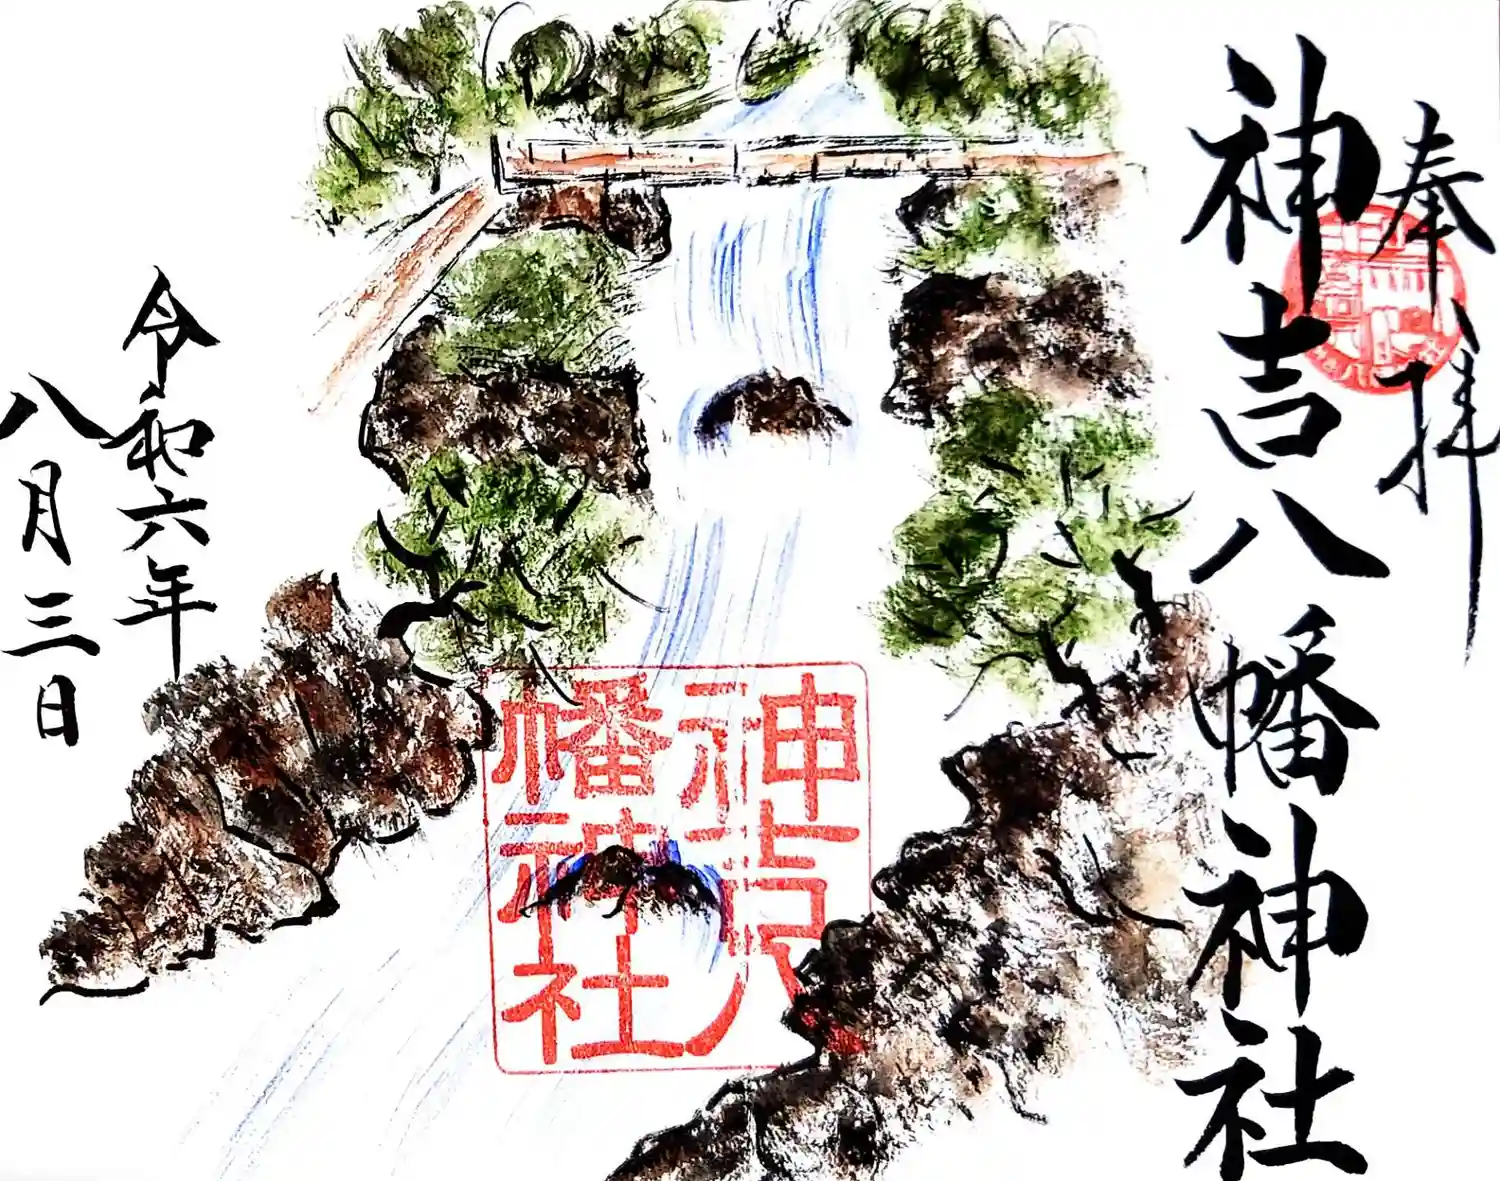 奉拝
神吉八幡神社
神吉八
幡神社
令和六年
八月三日